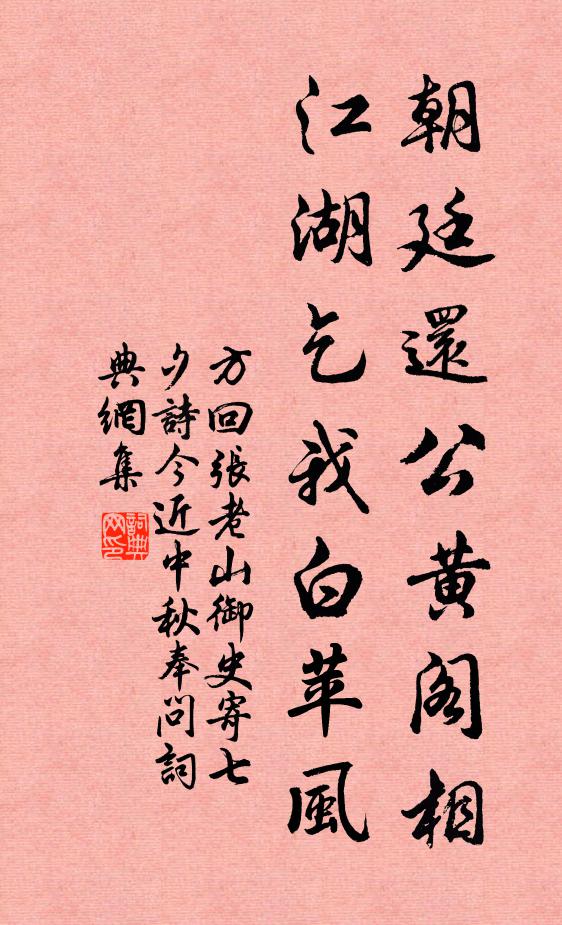 朝廷還公黄阁相
江湖乞我白苹風
方回張老山御史寄七
夕詩今近中秋奉问詞
典網集
詞典网印